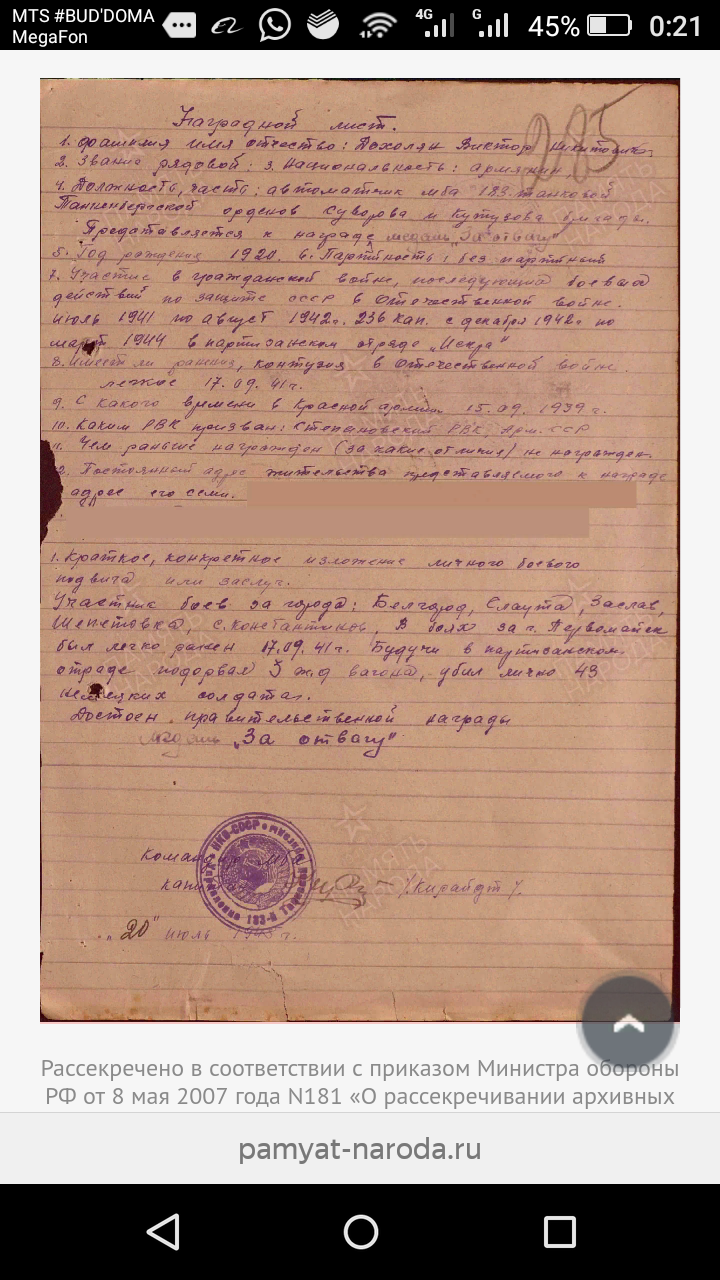 MTS #BUD'DOMA
MegaFon
4G
G
45%
0:21
285
Наградной лист.
1. Фамилия имя отчество: Дохолян Виктор
2. Звание рядовой. 3. Национальность: армянин.
4. Должность, часть: автоматчик мба 183 танковой
орденов Суворова и Кутузова бригады.
Представляется к награде медаль „За отвагу"
5. Год рождения 1920. 6. Партийность: без партийный
7. Участие в гражданской войне, последующих боевых
действий по защите СССР в Отечественной войне.
июль 1941 по август 1942г. 236 кап. с декабря 1942г по
март 1944 в партизанском отряде „Искра"
8. Имеет ли ранения, контузия в Отечественной войне.
легкое 17.09.41г.
9. С какого времени в Красной армии 15.09.1939г.
10. Каким РВК призван: Степановский РВК, Арм.ССР
11. Чем раньше награжден (за какие отличия) не награжден.
2. Постоянный адрес жительства представляемого к награде
адрес его семи.
1. Краткое, конкретное изложение личного боевого
подвига или заслуг.
Участник боев за города: Белгород, Славута, Заслав,
Шепетовка, с. Константинов, В боях за г. Первомайск
был легко ранен 17.09.41г. Будучи в партизанском
отряде подорвал 5 ж.д вагона, убил лично 43
немецких солдата.
Достоен правительственной награды
медаль „За отвагу"
НКО-СССР
Управление 183-й
/.Кирайдт/.
„20" июль 1945г.
ПАМЯТЬ НАРОДА
Рассекречено в соответствии с приказом Министра обороны
РФ от 8 мая 2007 года N181 «О рассекречивании архивных
pamyat-naroda.ru